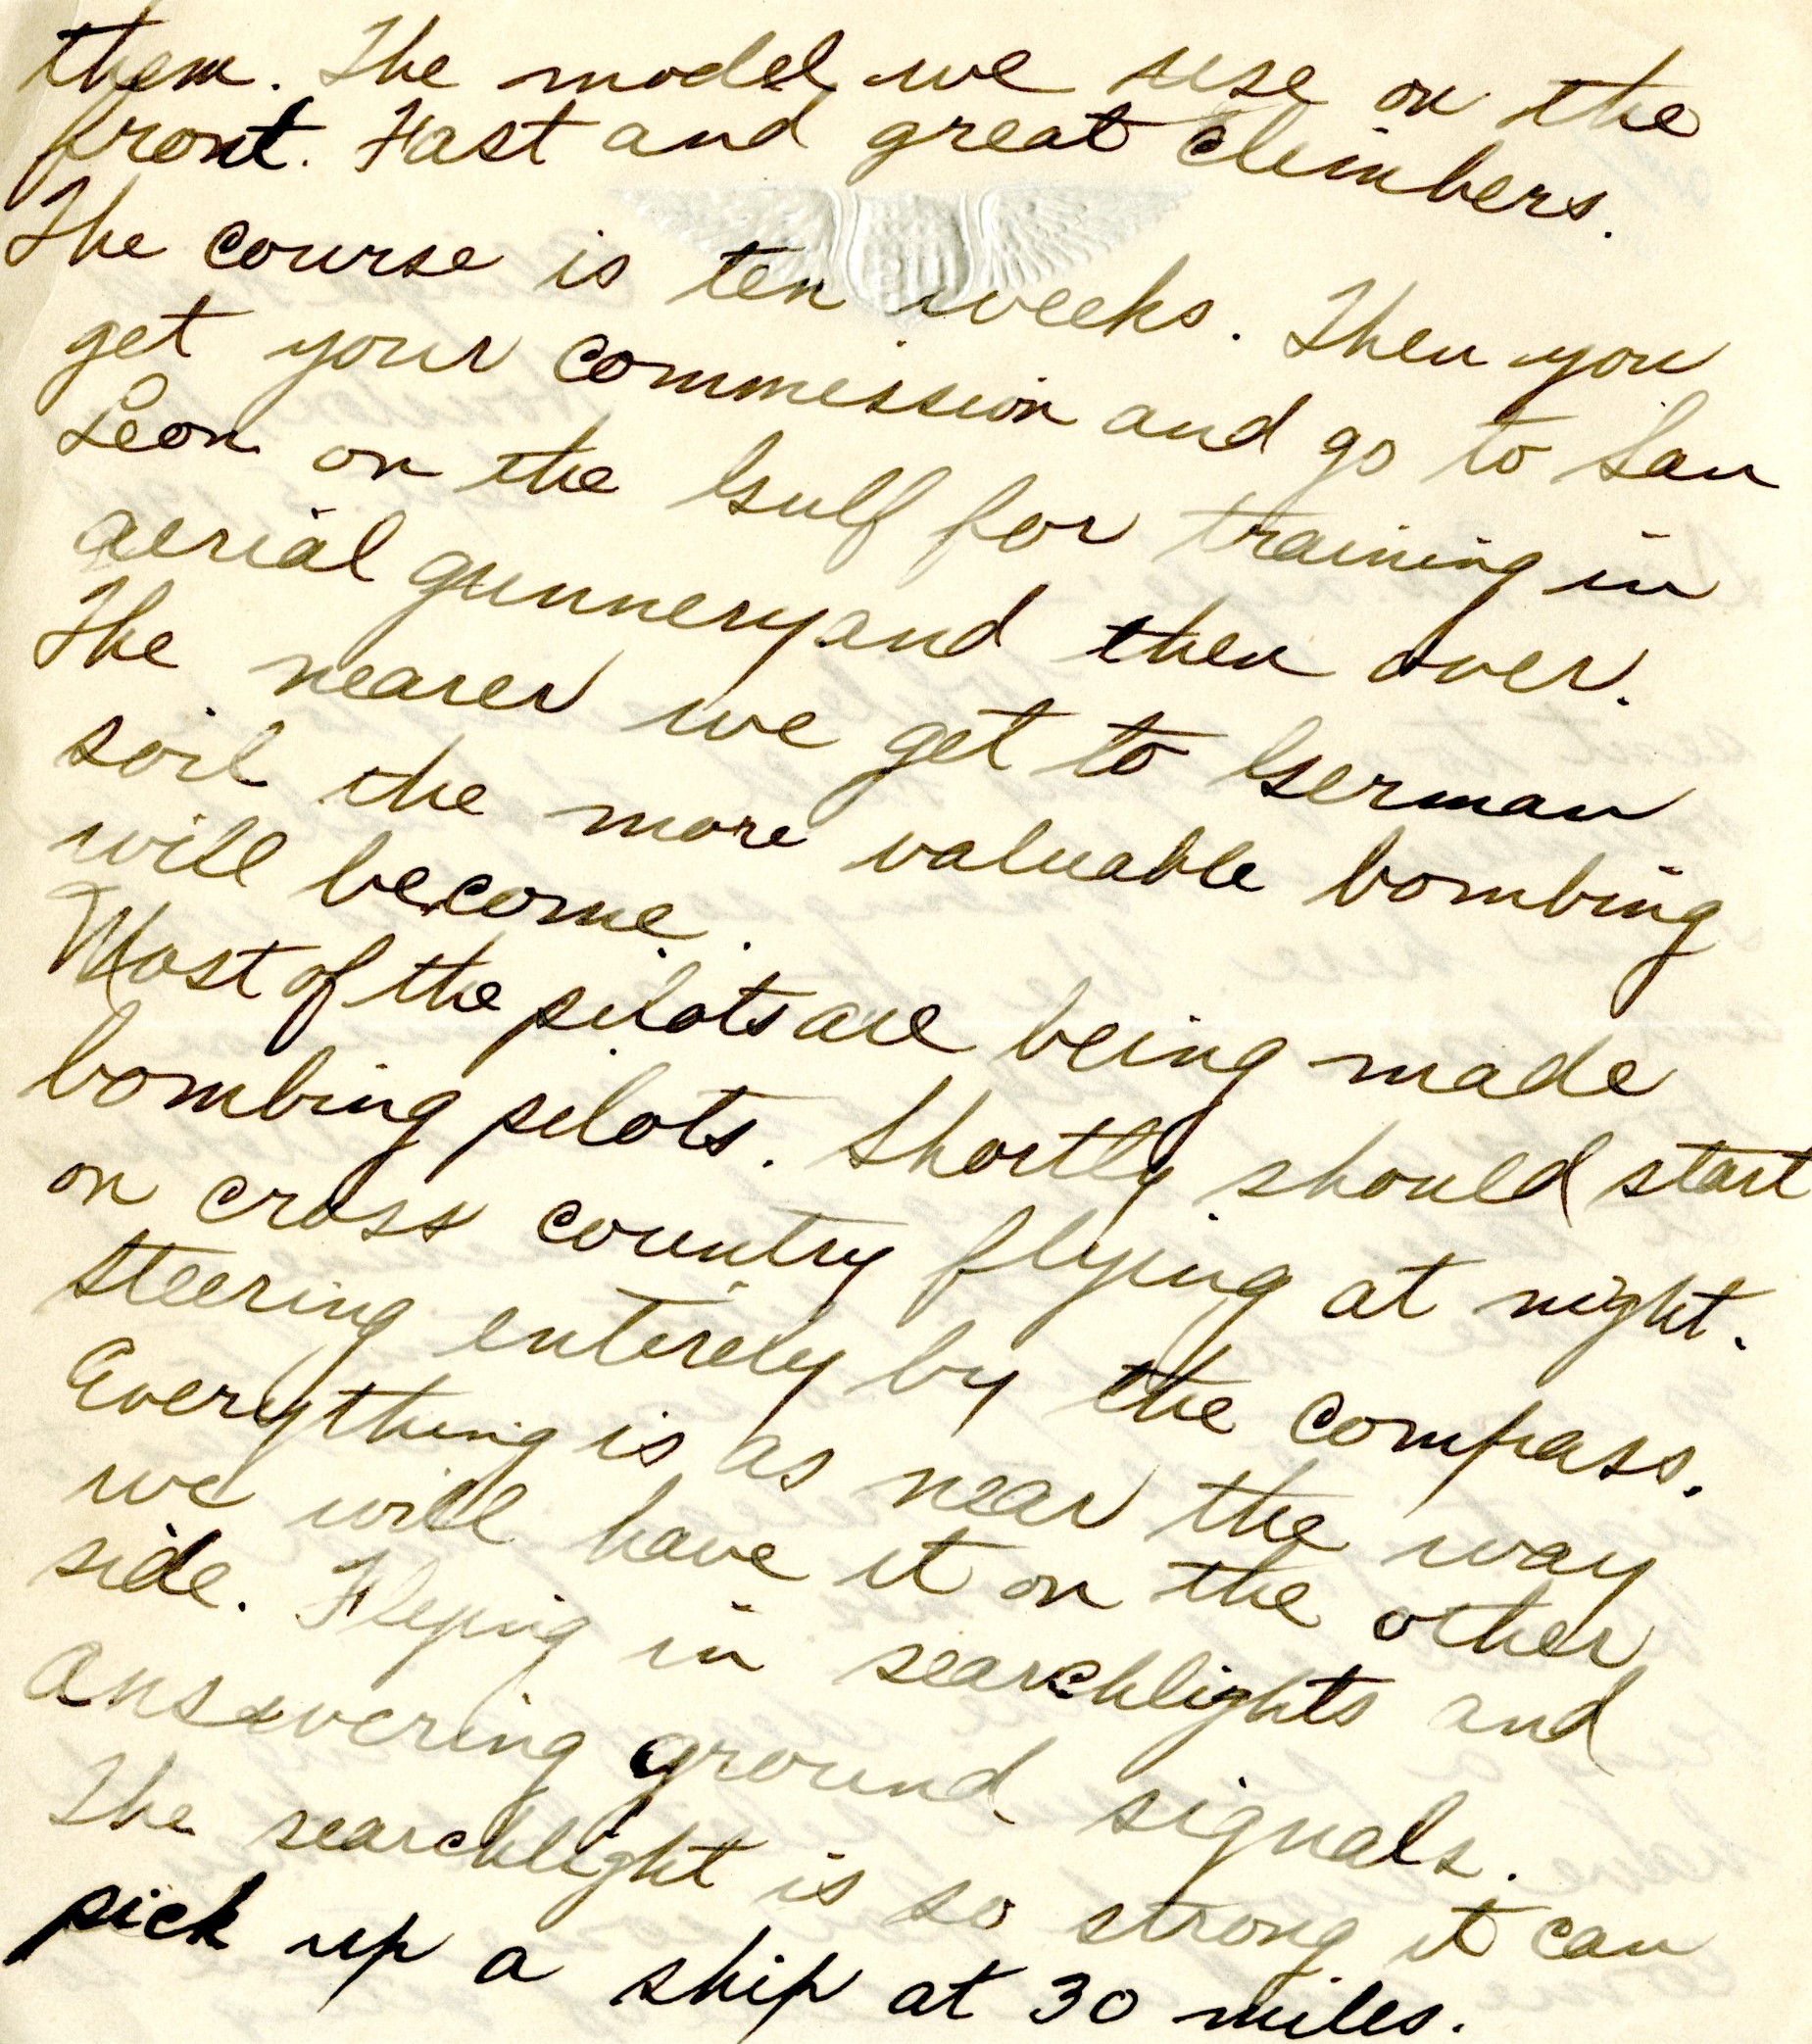 them. The model we use on the
front. Fast and great climbers.
The course is ten weeks. Then you
get your commission and go to San
Leon on the Gulf for training in
aerial gunnery and then over.
The nearer we get to German
soil the more valuable bombing
will become.
Most of the pilots are being made
bombing pilots. Shortly should start
on cross country flying at night.
steering entirely by the compass.
Everything is as near the way
we will have it on the other
side. Flying in searchlights and
answering ground signals.
The searchlight is so strong it can
pick up a ship at 30 miles.